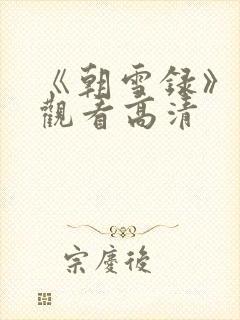 《朝雪録》
觀看高清
宗慶後